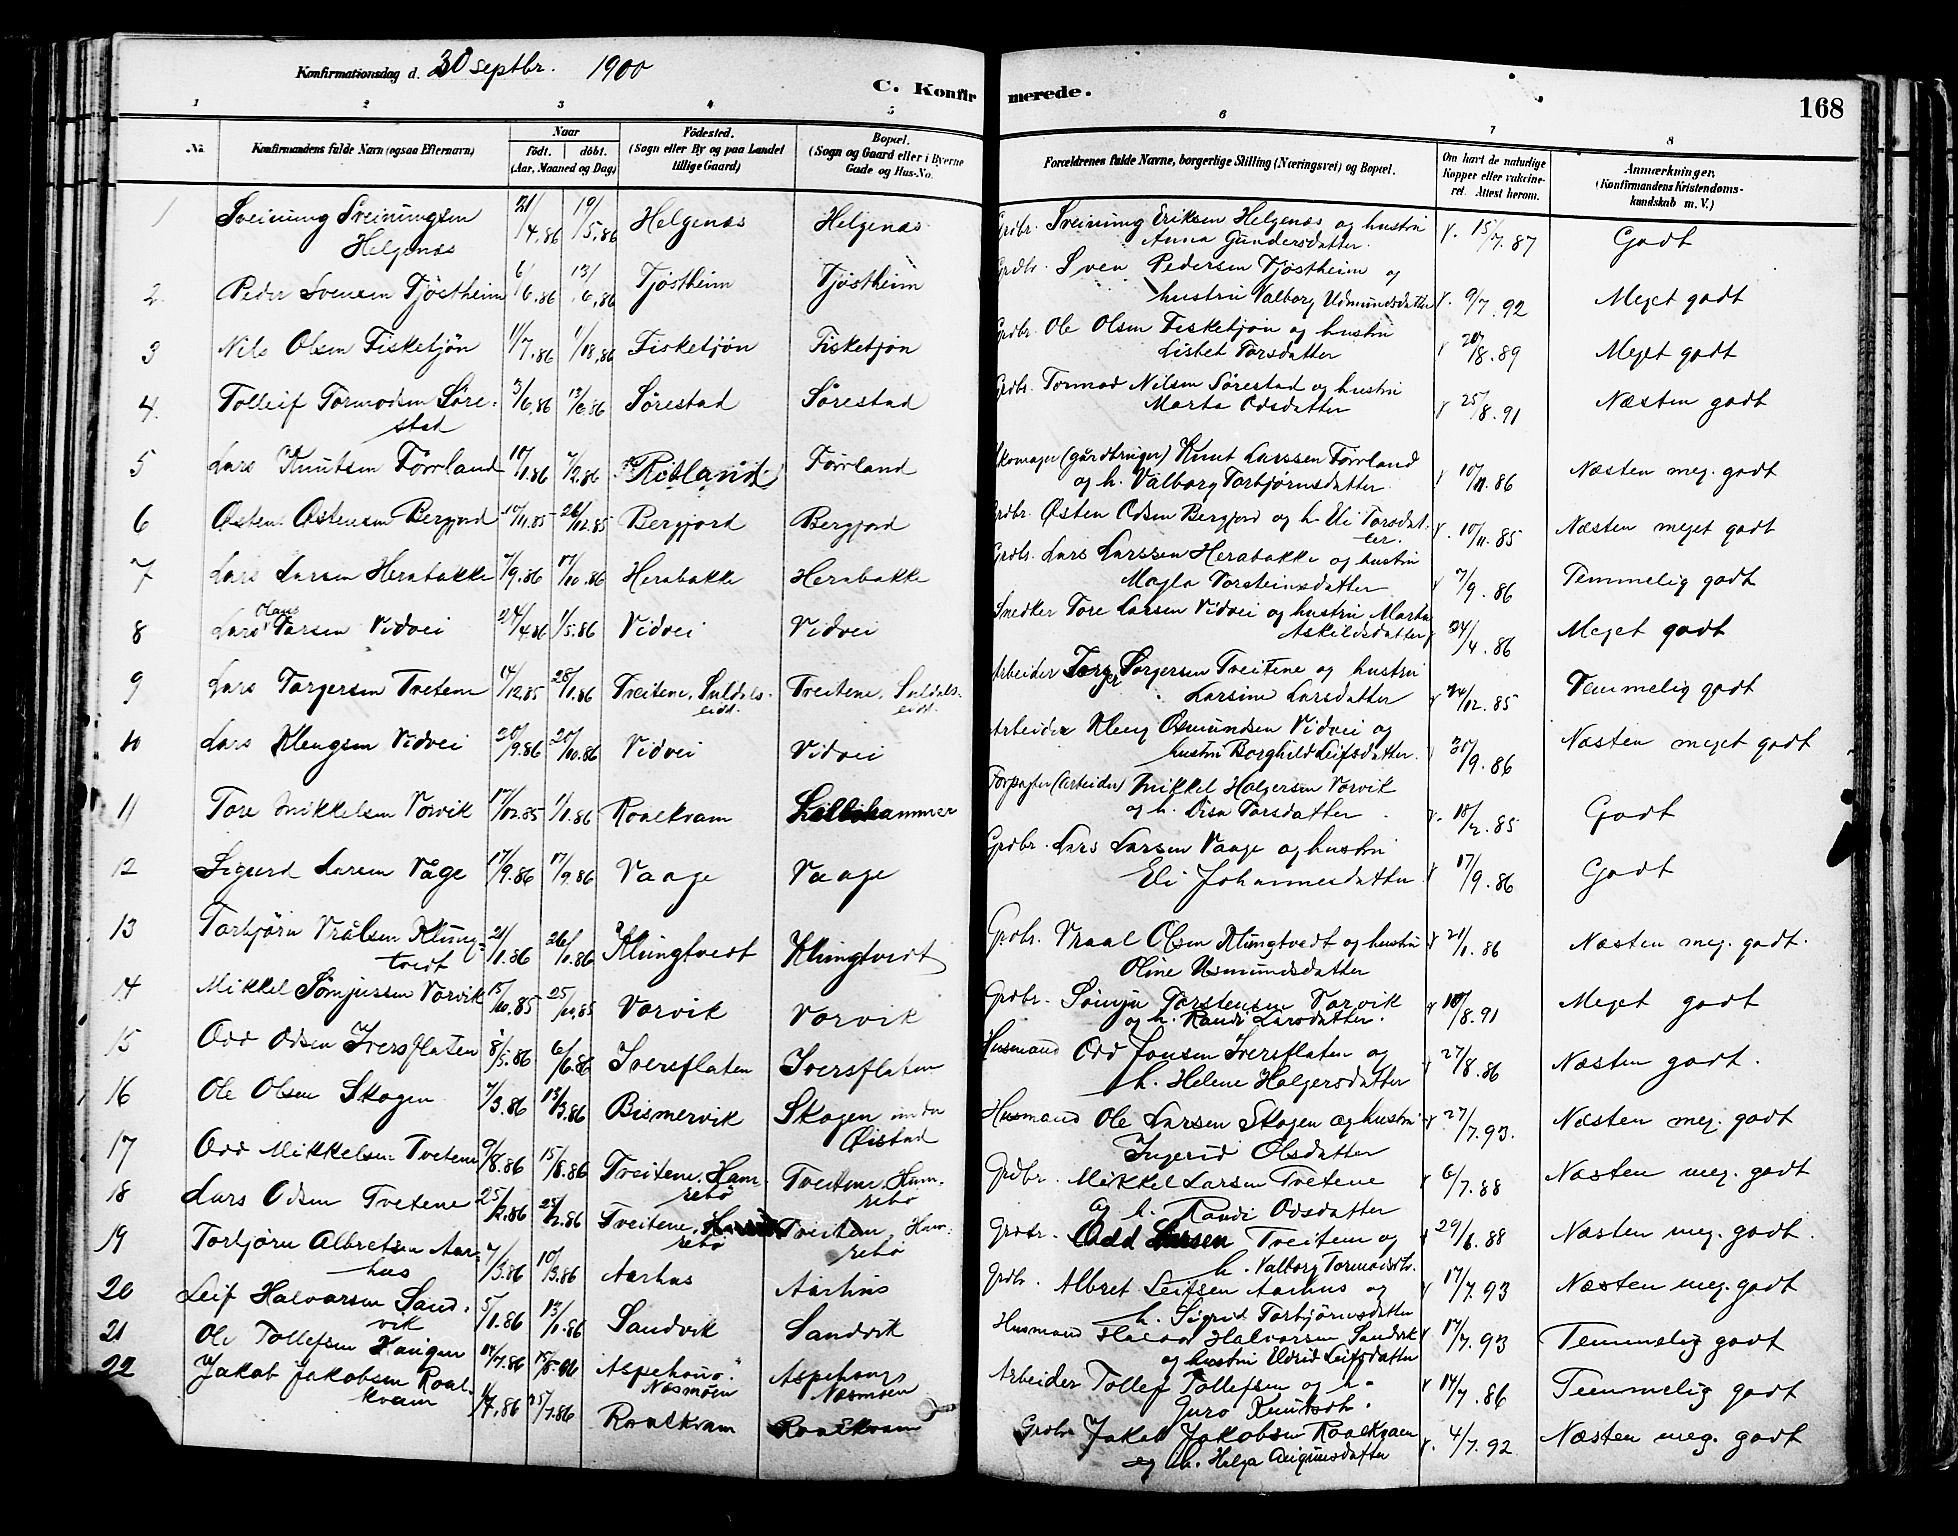 Konfirmationsdag d. 30 septbr. 1900
C. Konfirmerede.
168
1 2 3 4 5 6 7 8
No.
Konfirmandens fulde Navn (ogsaa Efternavn)
Naar
født. døbt.
(Aar, Maaned og Dag)
Fødested.
(Sogn eller By og paa Landet tillige Gaard)
Bopæl.
(Sogn og Gaard eller i Byerne Gade og Hus-No.
Forældrenes fulde Navne, borgerlige Stilling (Næringsvei) og Bopæl.
Om havt de naturlige Kopper eller vaccineret. Attest herom.
Anmærkninger.
(Konfirmandens Kristendomskundskab m. V.)
1 Sveinung Sveinungsen Helgenæs 21/4.86 19/5.86 Helgenæs Helgenæs Grdbr. Sveinung Eriksen Helgenæs og hustru Anna Gundersdatter v. 15/7.87 Godt
2. Peder Svensen Tjøstheim 6/6.86 13/6.86 Tjøstheim Tjøstheim Grdbr. Sven Pedersen Tjøstheim og hustru Valborg Udmundsdatter v. 9/7.92 Meget godt
3 Nils Olsen Fisketjøn 11/7.86 1/8.86 Fisketjøn Fisketjøn Grdbr. Ole Olsen Fisketjøn og hustru Lisbet Torsdatter v 20/8.89 Meget godt
4. Tolleif Tormodsen Sørestad 3/6.86 13/6.86 Sørestad Sørestad Grdbr. Tormod Nilsen Sørestad og hustru Marta Odsdatter v 25/8.91 Næsten godt
5 Lars Knutsen Førrland 10/1.86 7/2.86 Førrland Skomager (gårdbruger) Knut Larssen Førrland og h. Valborg Torbjørnsdatter v 10/11.86 Næsten meg. godt
6 Østen Østensen Bergjord 10/11.85 26/12.85 Bergjord Bergjord Grdbr. Østen Odsen Bergjord og h. Eli Torsdatter. v. 10/11.85 Næsten meget godt
7 Lars Larsen Herabakke 7/9.86 17/10.86 Herabakke Herabakke Grdb. Lars Larssen Herabakke og hustru Magla Torsteinsdatter v 7/9.86 Temmelig godt
8 Lars Olaus Torsen Vidvei 24/4.86 1/5.86 Vidvei Vidvei Snedker Tore Larsen Vidvei og hustru Marta Askildsdatter v 24/4.86 Meget godt
9 Lars Torgersen Tvetene 14/12.85 28/1.86 Treitene, Suldalseidt. Treitene, Suldalseidt. Arbeider Torger Torgersen Treitene og hustru Larsine Larsdatter v 24/12.85 Temmelig godt
10 Lars Klengsen Vidvei 20/9.86 20/10.86 Vidvei Vidvei Arbeider Kleng Osmundsen Vidvei og hustru Borghild Leifsdatter. v 20/9.86 Næsten meget godt
11 Tore Mikkelsen Vorvik 17/12.85 1/1.86 Roalkvam Lillehammer Forpagter (arbeider) Mikkel Holgersen Vorvik og h. Disa Torsdatter v. 18/2.85 Godt
12 Sigurd Larsen Våge 17/9.86 17/9.86 Vaage Vaage Grdbr. Lars Larsen Vaage og hustru Eli Johannesdatter v 17/9.86 Godt
13 Torbjørn Vrålsen Klungtvedt 21/1.86 26/1.86 Klungtvedt Klungtvedt Grdbr. Vraal Olsen Klungtvedt og hustru Oline Usmundsdatter v 21/1.86 Næsten meg. godt.
14 Mikkel Sømjursen Vorvik 15/10.85 25/10.85 Vorvik Vorvik Grdbr. Torstensen Vorvik og h. Randi Larsdatter. v 10/8.91 Meget godt
15 Odd Odsen Iversflaten 8/5.86 6/6.86 Iversflaten Iversflaten Husmand Odd Jonsen Iversflaten og h. Helene Holgersdatter v 27/8.86 Næsten godt.
16 Ole Olsen Skogen 7/3.86 13/3.86 Bismervik Skogen under Øistad Husmand Ole Larsen Skogen og hustru Ingerid Olsdatter v 27/7.93. Næsten meg. godt
17 Odd Mikkelsen Tvetene 9/8.86 15/8.86 Treitene, Hamrebø Treitene, Hamrebø Grdbr. Mikkel Larsen Tretene og h. Randi Odsdatter v 6/7.88 Næsten meg. godt
18 Lars Odsen Tvetene 25/2.86 28/2.86 Treitene, Hamrebø Treitene, Hamrebø Grdbr. Odd Larsen Treitene og h. Valborg Tormodsdtr. v 29/6.88 Næsten meg. godt.
19 Torbjørn Albretsen Aarhus 7/3.86 10/3.86 Aarhus Aarhus Grdbr. Albret Leifsen Aarhus og h. Sigrid Torbjørnsdatter v 17/7.93 Næsten meg. godt
20 Leif Halvorsen Sandvik 5/1.86 13/1.86 Sandvik Sandvik Husmand Halvor Halvorsen Sandvik og hustru Eldrid Leifsdatter v 17/7.93 Temmelig godt
21 Ole Tollefsen Haugen 14/7.86 Aspehaug Næsmoen Aspehaug Næsmoen Arbeider Tollef Tollefsen og h. Guro Knutsdtr. v 14/7.86 Temmelig godt
22 Jakob Jakobsen Roalkvam 4/4.86 25/7.86 Roalkvam Roalkvam Grdbr Jakob Jakobsen Roalkvam og h. Helga v. 4/7.92 Næsten meg. godt